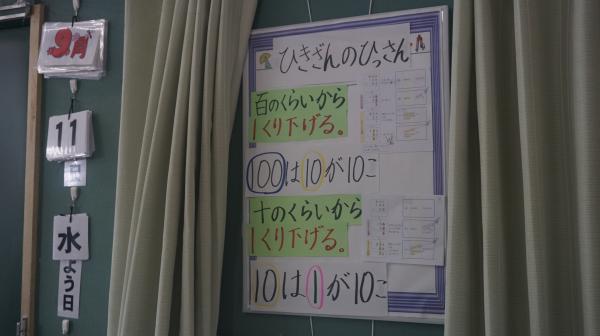 9月
11
日
水
よう日
ひきざんのひっさん
百のくらいから
1くり下げる。
100は10が10こ
十のくらいから
1くり下げる。
10は1が10こ